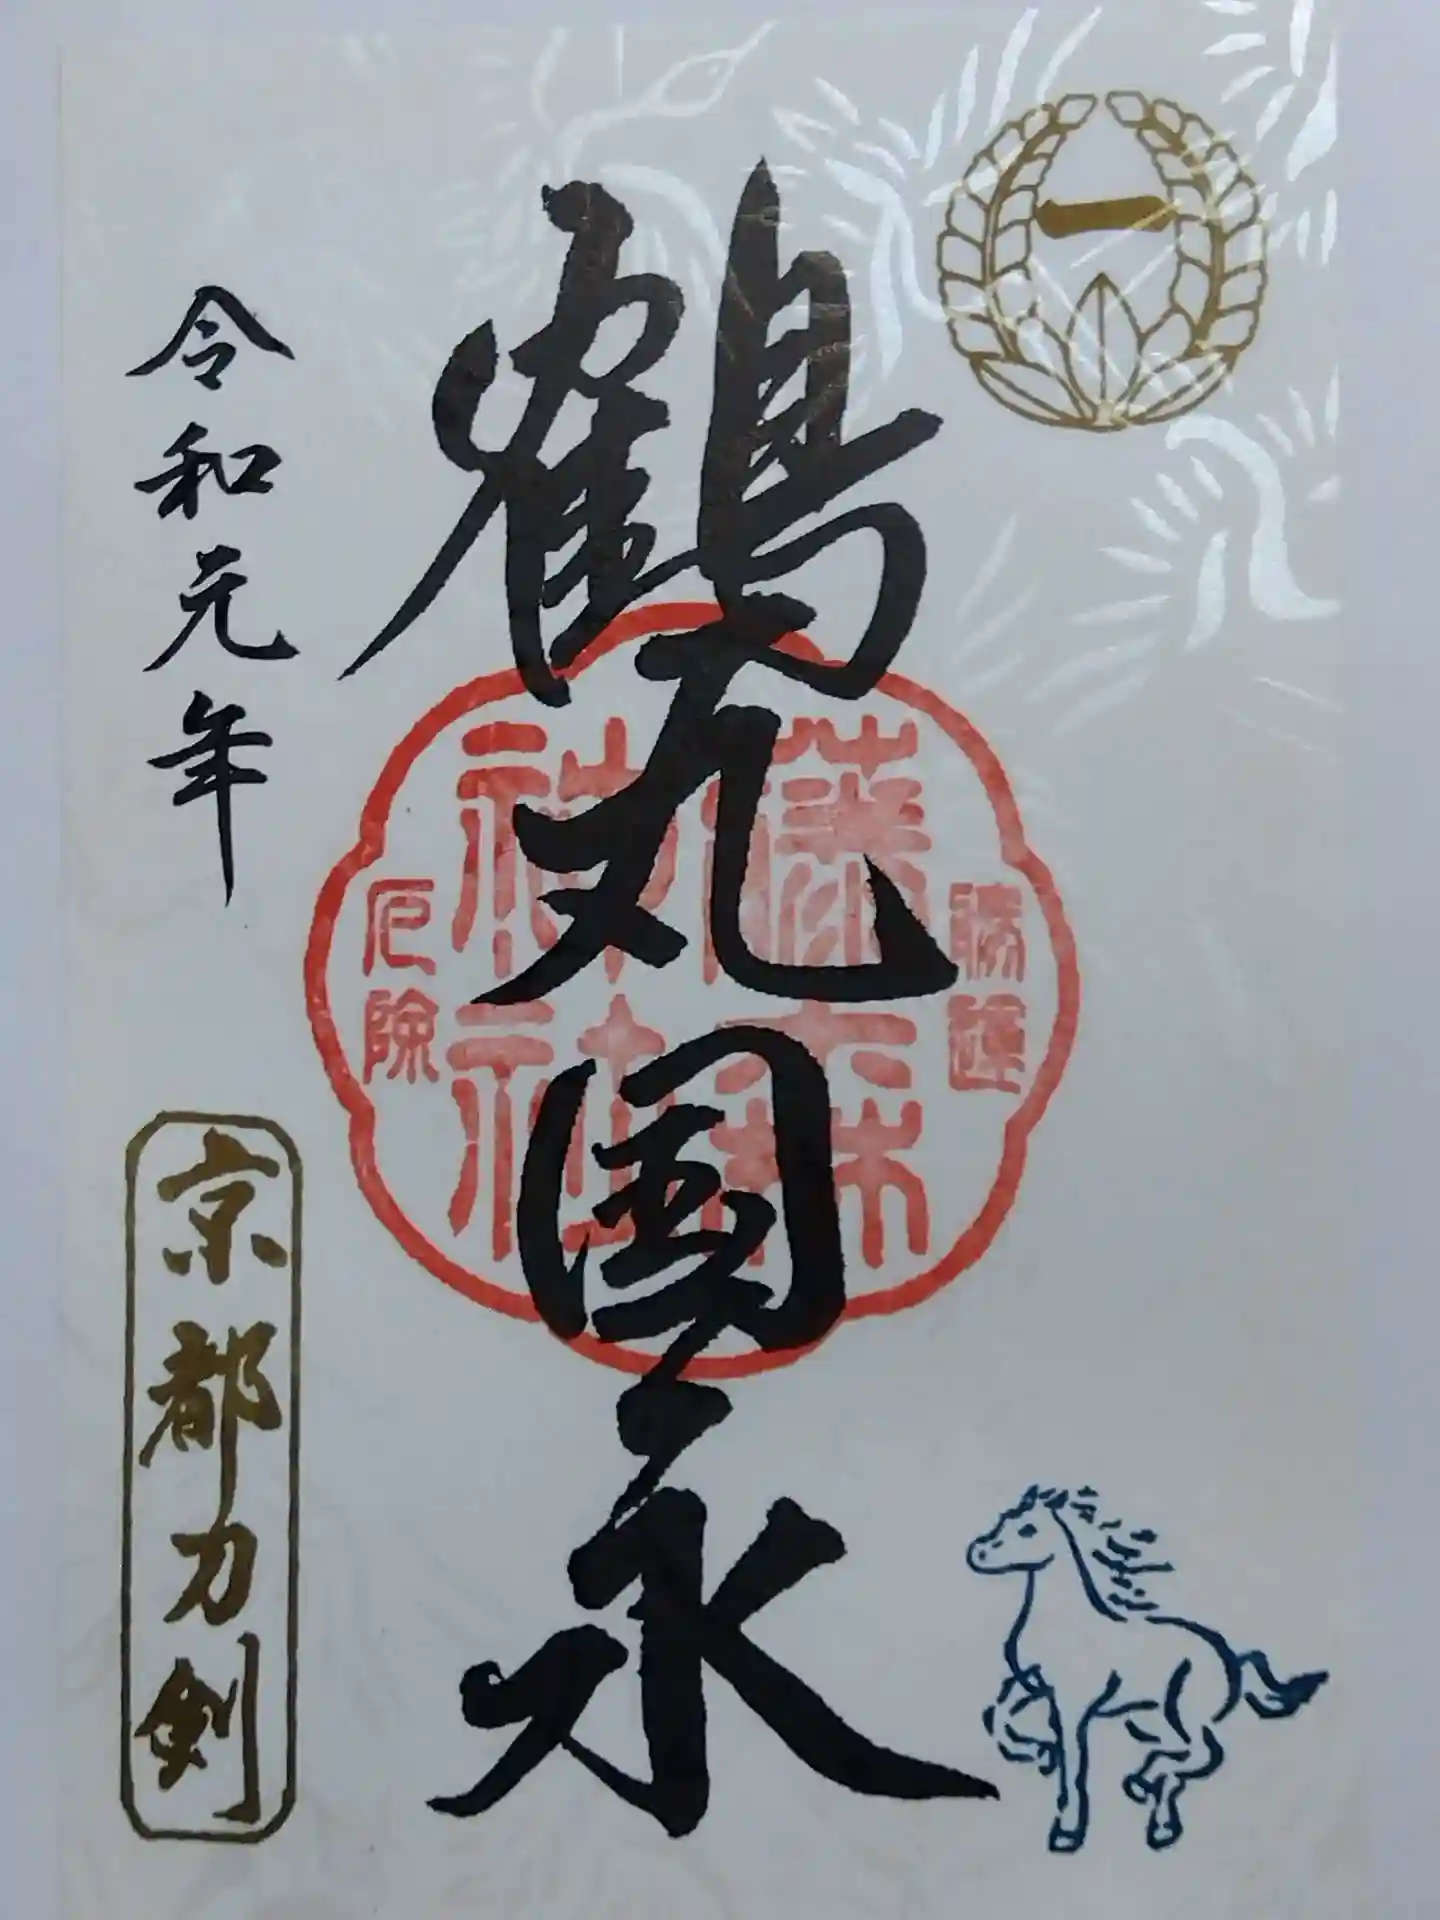 一
鶴丸国永
勝運
藤森
神社
厄除
令和元年
京都刀剣